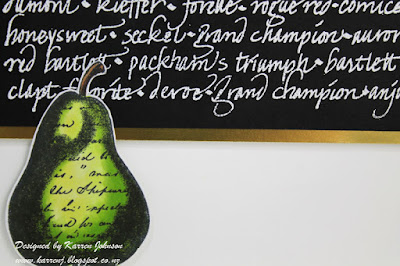 dumont • kieffer • forelle • rogue red • comice
honeysweet • seckel • grand champion • auror
red bartlett • packham's triumph • bartlett
clapt favorite • devoe • grand champion • anju
the
Designed by Karren Johnson
www.karrenj.blogspot.co.nz